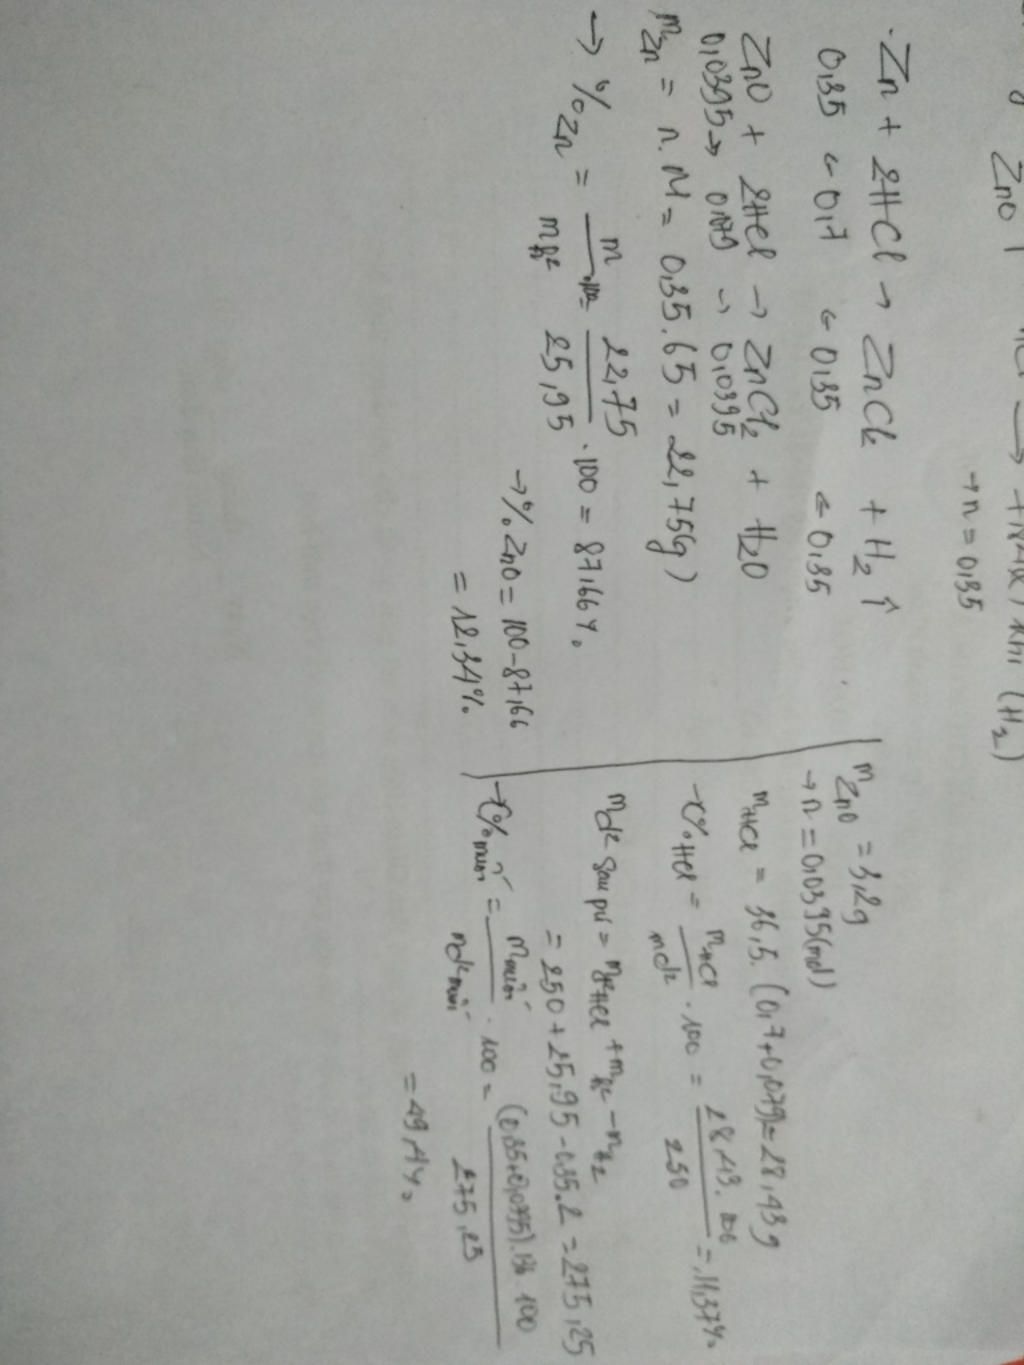 ZnO
→ n = 0,35
Zn + 2HCl → ZnCl2 + H2 ↑
0,35 ← 0,7 ← 0,35 ← 0,35
ZnO + 2HCl → ZnCl2 + H2O
0,0395 → 0,079 → 0,0395
mZn = n.M = 0,35.65 = 22,75(g)
→ %Zn = m/mhh .100 = 22,75/25,95 .100 = 87,66%
→ %ZnO = 100-87,66
= 12,34%
mZnO = 3,2g
→ n = 0,0395(mol)
mHCl = 36,5.(0,7+0,079) = 28,43g
→ C%HCl = mHCl/mdd .100 = 28,43.100/250 = 11,37%
mdd sau pứ = mddHCl + mhh - mH2
= 250 + 25,95 - 0,35.2 = 275,25
→ C%muối = mmuối/mdd muối .100 = .100/275,25